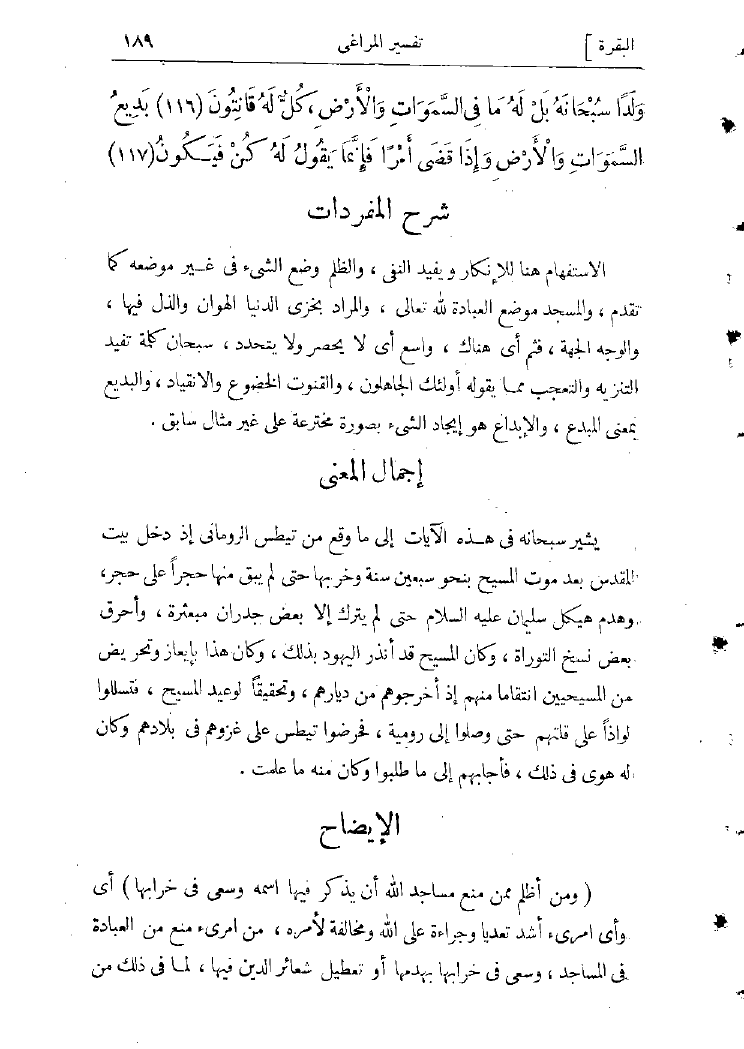 البقرة ] تفسير المراغى ١٨٩
وَلَدًا سُبْحَانَهُ بَلْ لَهُ مَا فِى السَّمَوَاتِ وَالْأَرْضِ، كُلٌّ لَهُ قَانِتُونَ (١١٦) بَدِيعُ
السَّمَوَاتِ وَالْأَرْضِ وَإِذَا قَضَى أَمْرًا فَإِنَّمَا يَقُولُ لَهُ كُنْ فَيَكُونُ (١١٧)
شرح المفردات
الاستفهام هنا للإنكار ويفيد النفى ، والظلم وضع الشىء فى غير موضعه كما
تقدم ، والمسجد موضع العبادة لله تعالى ، والمراد بخزى الدنيا الهوان والذل فيها ،
والوجه الجهة ، فثم أى هناك ، واسع أى لا يحصر ولا يتحدد ، سبحان كلمة تفيد
التنزيه والتعجب مما يقوله أولئك الجاهلون ، والقنوت الخضوع والانقياد ، والبديع
بمعنى المبدع ، والإبداع هو إيجاد الشىء بصورة مخترعة على غير مثال سابق .
إجمال المعنى
يشير سبحانه فى هذه الآيات إلى ما وقع من تيطس الرومانى إذ دخل بيت
المقدس بعد موت المسيح بنحو سبعين سنة وخربها حتى لم يبق منها حجراً على حجر،
وهدم هيكل سليمان عليه السلام حتى لم يترك إلا بعض جدران مبعثرة ، وأحرق
بعض نسخ التوراة ، وكان المسيح قد أنذر اليهود بذلك ، وكان هذا بإيعاز وتحريض
من المسيحيين انتقاما منهم إذ أخرجوهم من ديارهم ، وتحقيقاً لوعيد المسيح ، فتسللوا
لواذاً على قلتهم حتى وصلوا إلى رومية ، فحرضوا تيطس على غزوهم فى بلادهم وكان
له هوى فى ذلك ، فأجابهم إلى ما طلبوا وكان منه ما علمت .
الإيضاح
( ومن أظلم ممن منع مساجد الله أن يذكر فيها اسمه وسعى فى خرابها ) أى
وأى امرىء أشد تعديا وجراءة على الله ومخالفة لأمره ، من امرىء منع من العبادة
فى المساجد ، وسعى فى خرابها بهدمها أو تعطيل شعائر الدين فيها ، لما فى ذلك من